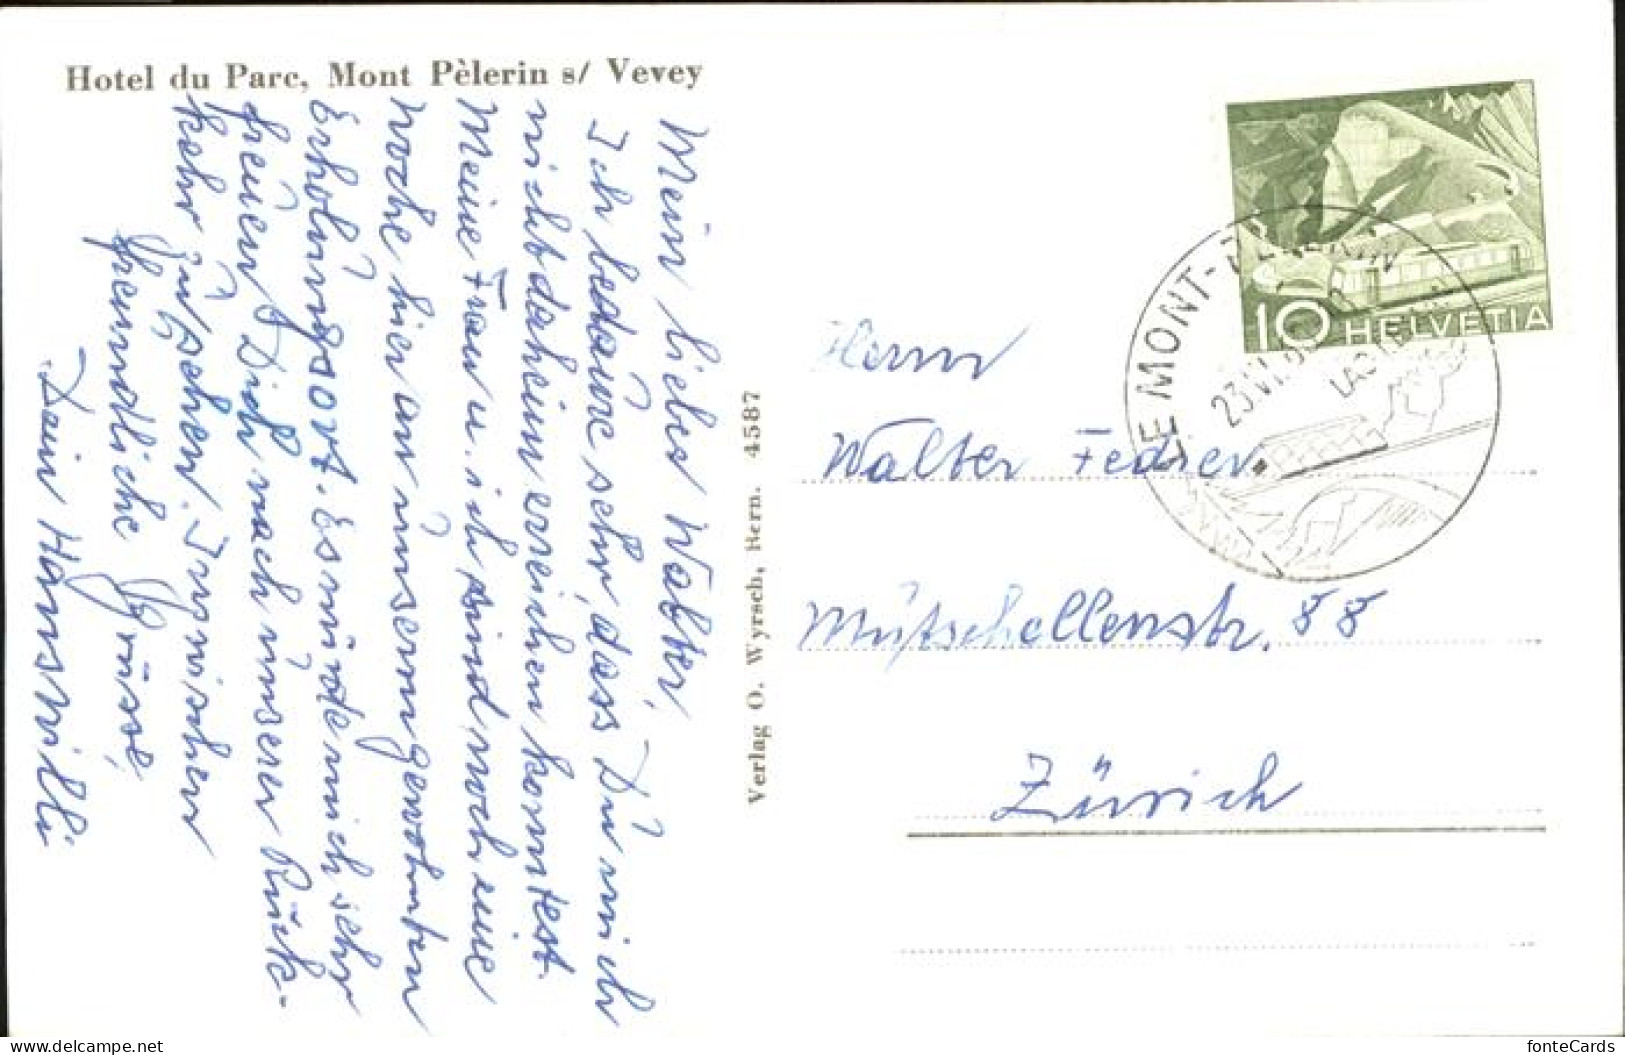 Hotel du Parc, Mont Pèlerin s/ Vevey
Mein lieber Walter,
Ich bedaure sehr, dass Du mich
nicht daheim erreichen konntest.
Meine Frau u. ich sind noch eine
Woche hier an unserem gewohnten
Erholungsort. Es würde mich sehr
freuen Dich nach unserer Rück-
kehr zu sehen. Inzwischen
freundliche Grüsse,
Dein Hanswilli
Verlag O. Wyrsch, Bern. 4587
10 HELVETIA
LE MONT-PÉLERIN
23.VI.
Herrn
Walter Federer
Mutschellenstr. 88
Zürich
www.delcampe.net
fonteCards